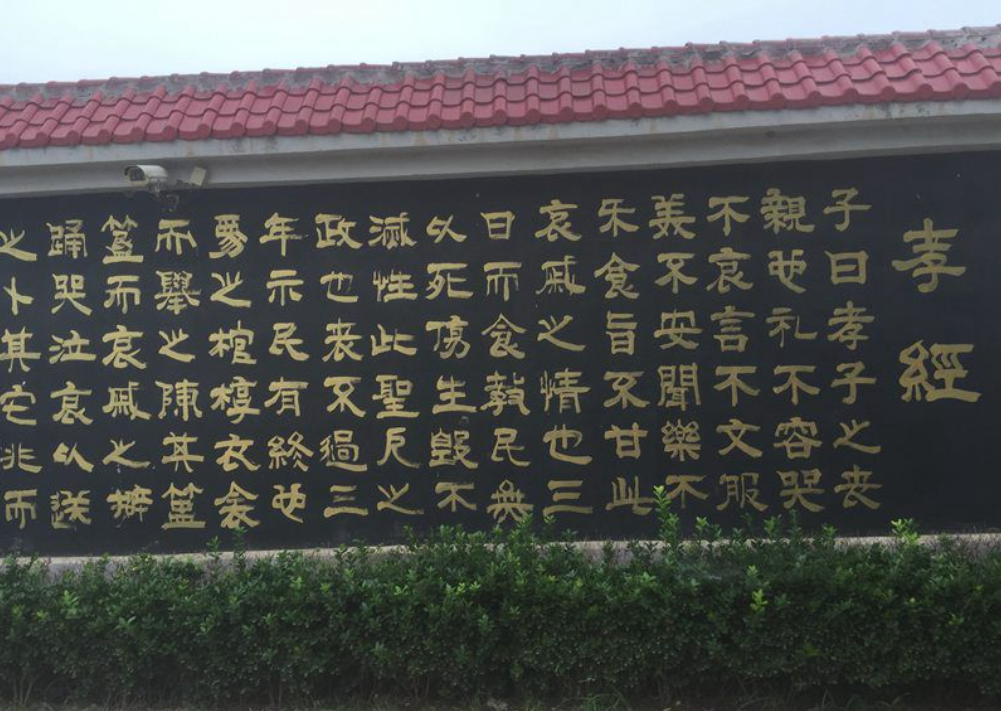 孝經
子曰孝子之丧
親也礼不容哭
不哀言不文服
美不安聞樂不
乐食旨不甘此
哀戚之情也三
日而食教民無
以死傷生毀不
滅性此聖人之
政也丧不過三
年示民有終也
為之棺椁衣衾
而舉之陳其簠
簋而哀戚之擗
踊哭泣哀以送
之卜其宅兆而